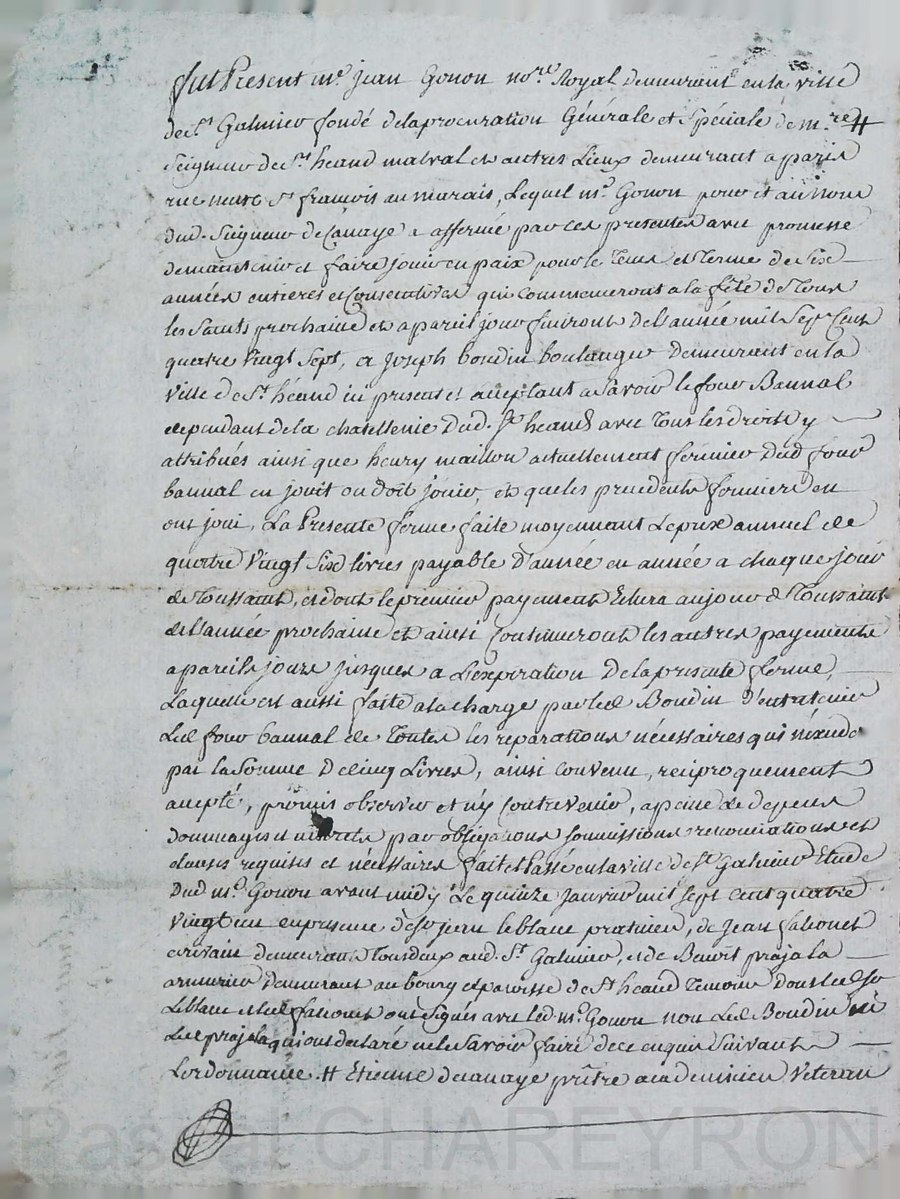 fut Présent me. jean Gonon nore. Royal demeurant en la ville
de St. Galmier fondé de la procuration Générale et Spéciale de mre. #
Seigneur de St. héand malval et autres Lieux demeurant a paris
rue neuve St. françois au marais, Lequel me. Gonon pour et au Nom
dud. Seigneur de Canaye a affermé par ces presentes avec promesse
de maintenir et faire jouir en paix pour le Tems et Terme de Six
années entieres et Consecutives qui Commenceront a la fête de Tous
les Saints prochaine et a pareil jour finiront de l'année mil Sept Cent
quatre Vingt Sept, a Joseph boudin boulanger Demeurant en la
Ville de St. héand ici present et acceptant a Savoir le four Bannal
dependant de la chatellenie Dud. St. heand avec Tous les droits y
attribués ainsi que henry maillon actuellement fermier Dud four
bannal en jouit ou doit jouir, et que les precedents fermiers en
ont joui, La Présente ferme faite moyennant Le prix annuel de
quatre Vingt Six livres payable D'année en année a chaque jour
de Toussaint, et dont le premier payement Echera au jour de Toussaint
de l'année prochaine et ainsi Continueront les autres payements
a pareils jours jusques a L'expiration De la presente ferme,
Laquelle est aussi faite a la charge par led Boudin D'entretenir
Led four bannal de Toutes les réparations nécessaires qui n'éxcéde
par la Somme De cinq Livres, ainsi convenu, réciproquement
accepté, promis observer et n'y Contrevenir, a peine de depens
dommages et interets par obligations soumissions renonciations et
clauses requises et nécessaires fait et Passé en la ville de St. Galmier Etude
Dud me. Gonon avant midy Le quinze Janvier mil sept cent quatre
Vingt un en presence de Sr. jean leblanc praticien, de Jean
écrivain demeurants Tous deux aud. St. Galmier, et de Benoit prajala
armurier Demeurant au bourg et paroisse de St. heand Temoins Dont led Sr.
Leblanc et led ont Signés avec led. me. Gonon non Led Boudin ni
Led prajala qui ont declaré ne le Savoir faire de ce enquis Suivant
L'ordonnance. # Etienne de canaye prêtre académicien Veteran
Pascal CHAREYRON